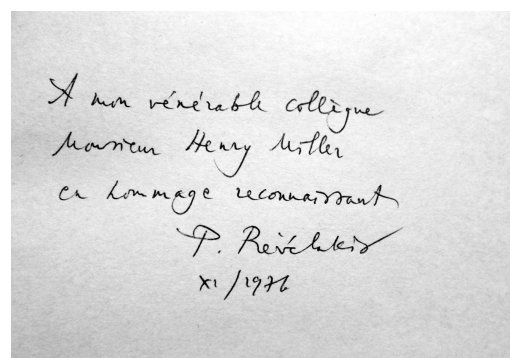 A mon vénérable collègue
Monsieur Henry Miller
en hommage reconnaissant
P. Prévélakis
XI/1976